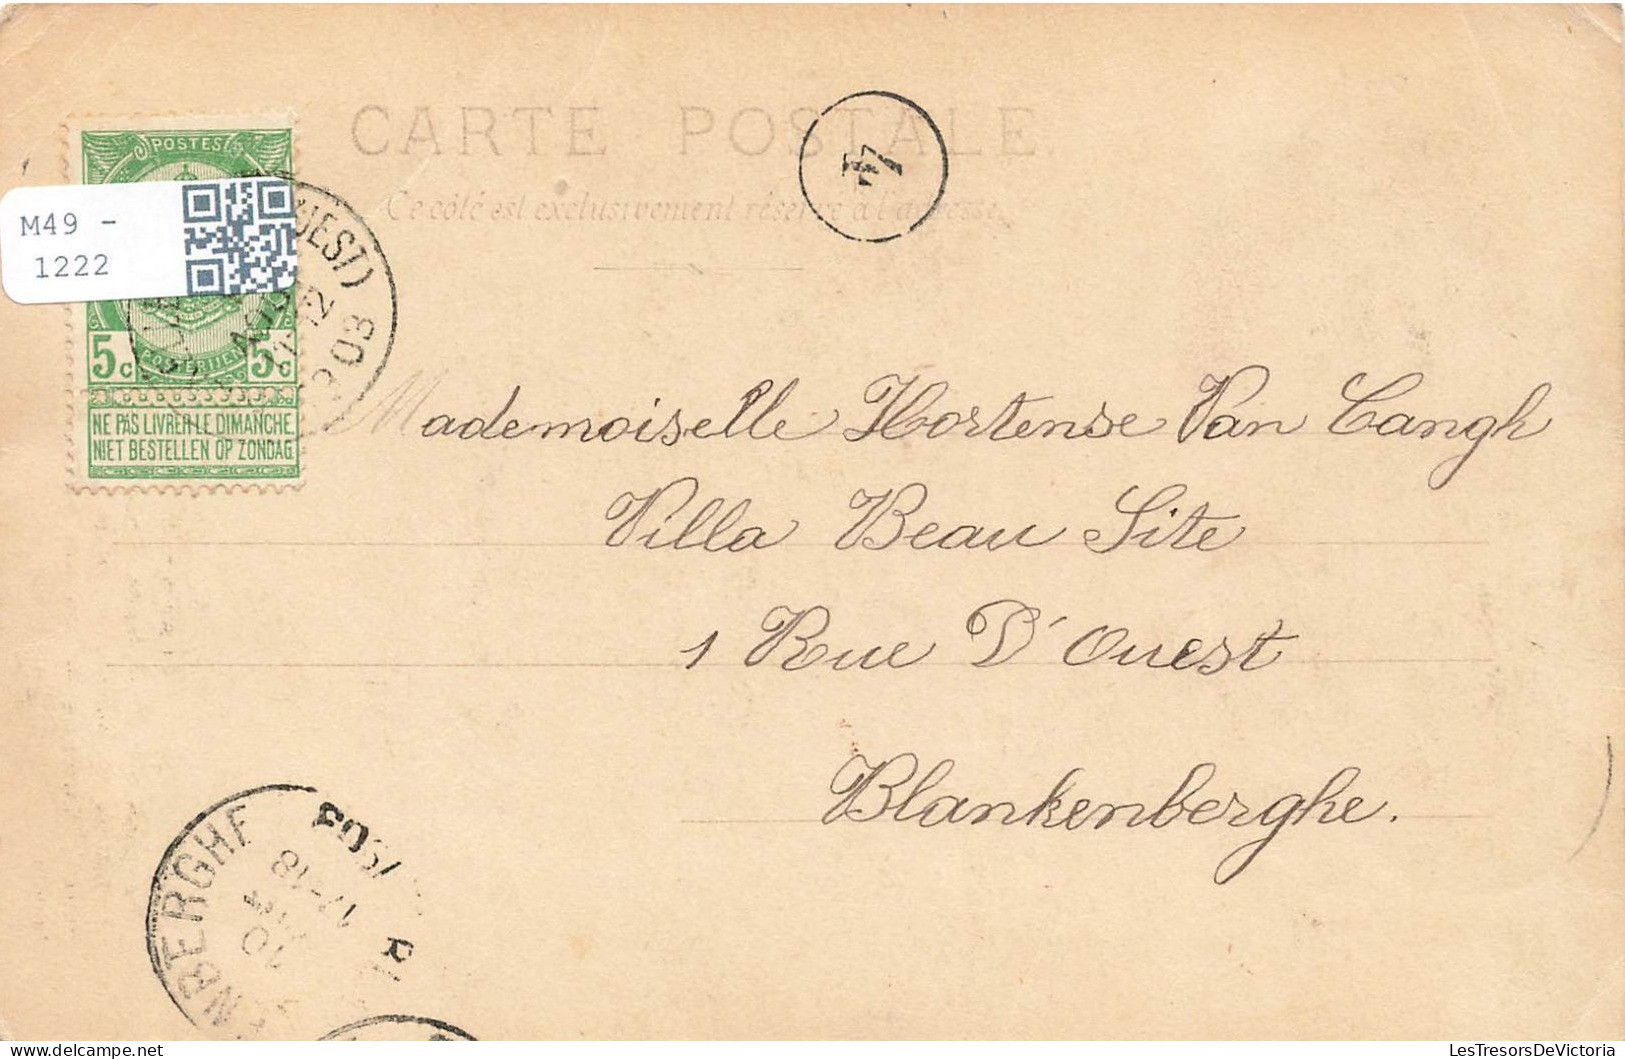 CARTE POSTALE
Ce côté est exclusivement réservé à l'adresse
4
POSTES
M49 -
1222
(OUEST)
12
03
5c 5c
POSTERIJEN
NE PAS LIVRER LE DIMANCHE
NIET BESTELLEN OP ZONDAG
Mademoiselle Hortense Van Cangh
Villa Beau Site
1 Rue D'Ouest
Blankenberghe.
NBERGHE
17-18
10
LesTresorsDeVictoria